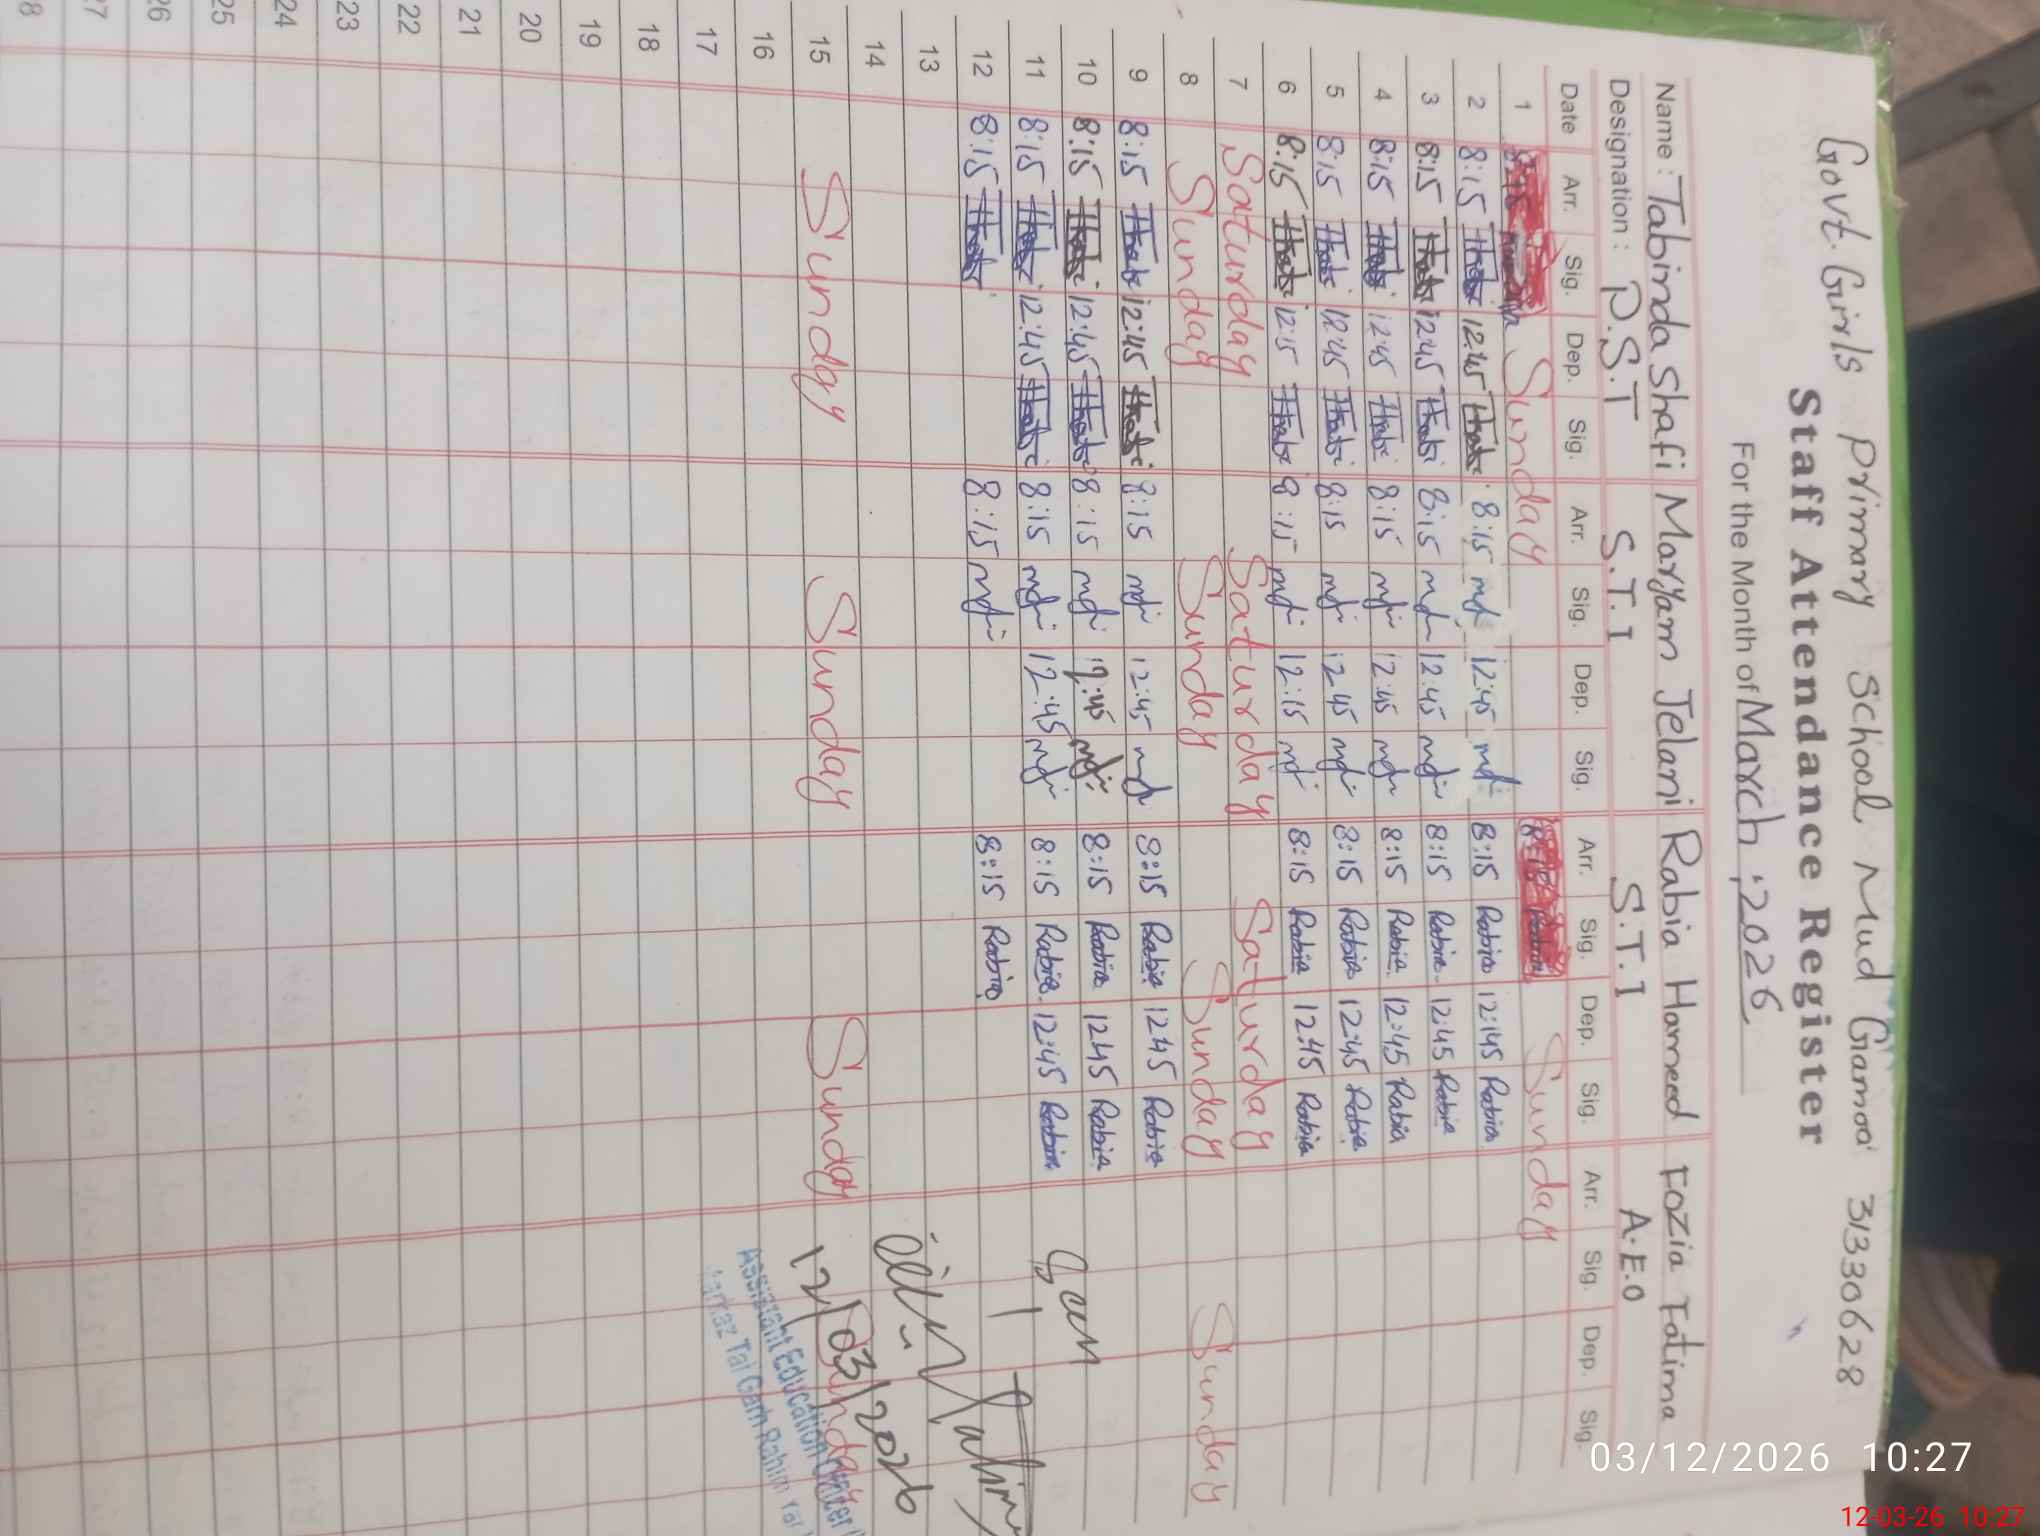 Govt. Girls Primary School Mud Ganna 31330628
Staff Attendance Register
For the Month of March, 2026
Name : Tabinda Shafi Maryam Jelani Rabia Hameed Fozia Fatima
Designation : P.S.T S.T.I S.T.I A.E.O
Date Arr. Sig. Dep. Sig. Arr. Sig. Dep. Sig. Arr. Sig. Dep. Sig. Arr. Sig. Dep. Sig.
1 Sunday Sunday
2 8:15 12:45 8:15 12:45 8:15 Rabia 12:45 Rabia
3 8:15 12:45 8:15 12:45 8:15 Rabia 12:45 Rabia
4 8:15 12:45 8:15 12:45 8:15 Rabia 12:45 Rabia
5 8:15 12:45 8:15 12:45 8:15 Rabia 12:45 Rabia
6 8:15 12:15 8:15 12:15 8:15 Rabia 12:45 Rabia
7 Saturday Saturday Saturday
8 Sunday Sunday Sunday Sunday
9 8:15 12:45 8:15 12:45 8:15 Rabia 12:45 Rabia
10 8:15 12:45 8:15 12:45 8:15 Rabia 12:45 Rabia
11 8:15 12:45 8:15 12:45 8:15 Rabia 12:45 Rabia
12 8:15 8:15 8:15 Rabia
Seen
13
14
15 Sunday Sunday Sunday Sunday
12/03/2026
Assistant Education
Markaz Tal Garh Rahim Yar
16
17
18
19
20
21
22
23
24
25
26
27
28
03/12/2026 10:27
12-03-26 10:27